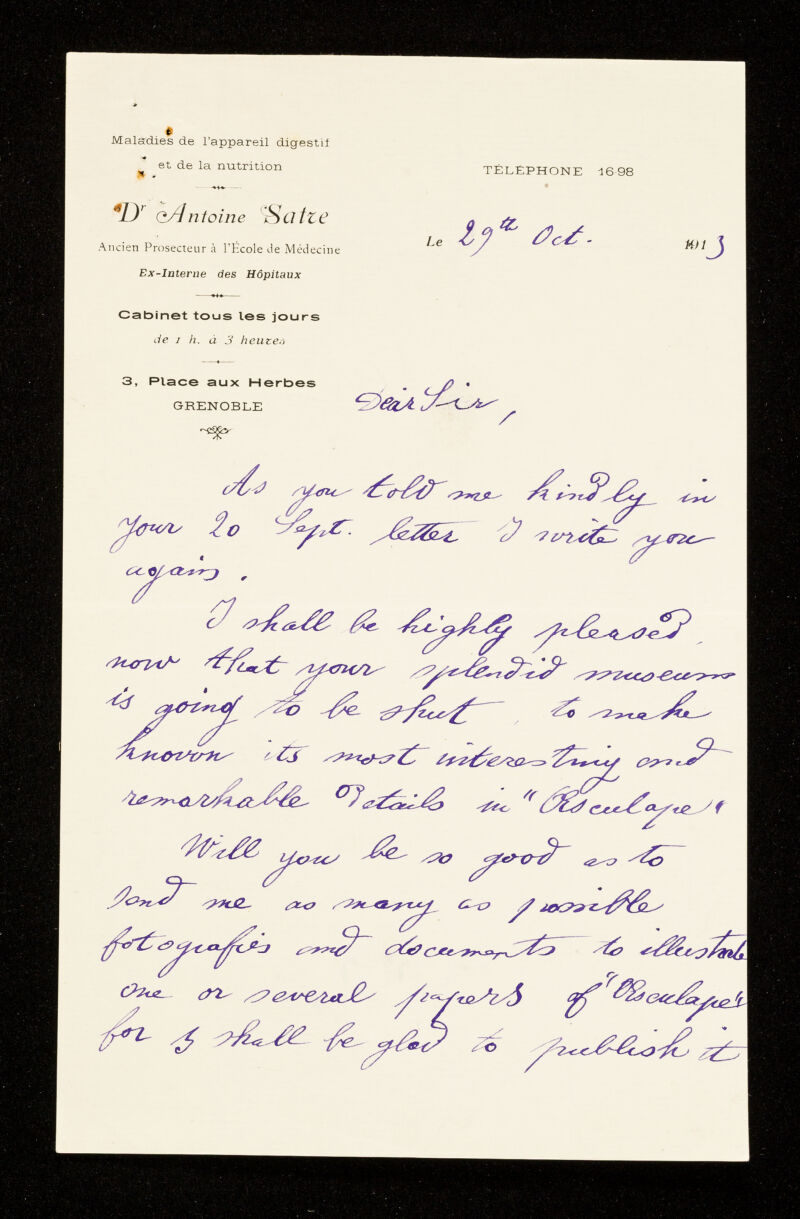 Maladies de l'appareil digestif
et de la nutrition
Dr Antoine Satre
Ancien Prosecteur à l'École de Médecine
Ex-Interne des Hôpitaux
Cabinet tous les jours
de 1 h. à 3 heures
3, Place aux Herbes
GRENOBLE
TÉLÉPHONE 16-98
Le 29th Oct. 1913
Dear Sir,
As you told me kindly in
your 20 Sept. letter I write you
again.
I shall be highly pleased,
now that your splendid museum
is going to be shut, to make
knovon its most interesting and
remarkable details in "Æsculape"
Will you be so good as to
send me as many as possible
fotografies and documents to illustrate
one or several papers of "Æsculape"
for I shall be glad to publish it